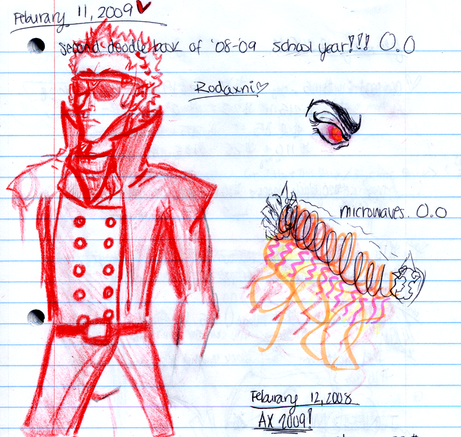 Feburary 11, 2009
second doodle book of '08-09 school year!!! O.O
Rodaxni
microwaves. O.O
Feburary 12, 2008
AX 2009!